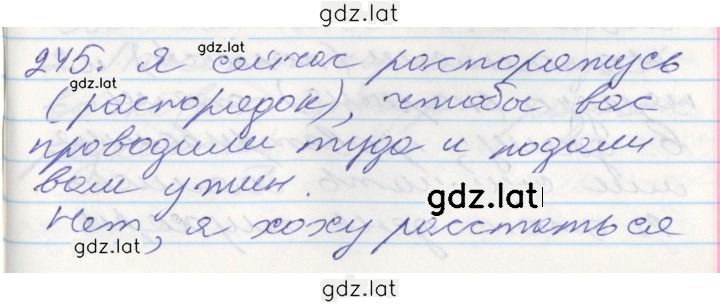 gdz.lat
gdz.lat
245. Я сейчас распоряжусь
(распорядок), чтобы вас
проводили туда и подали
вам ужин.
gdz.lat
gdz.lat
Нет, я хочу расстаться
gdz.lat